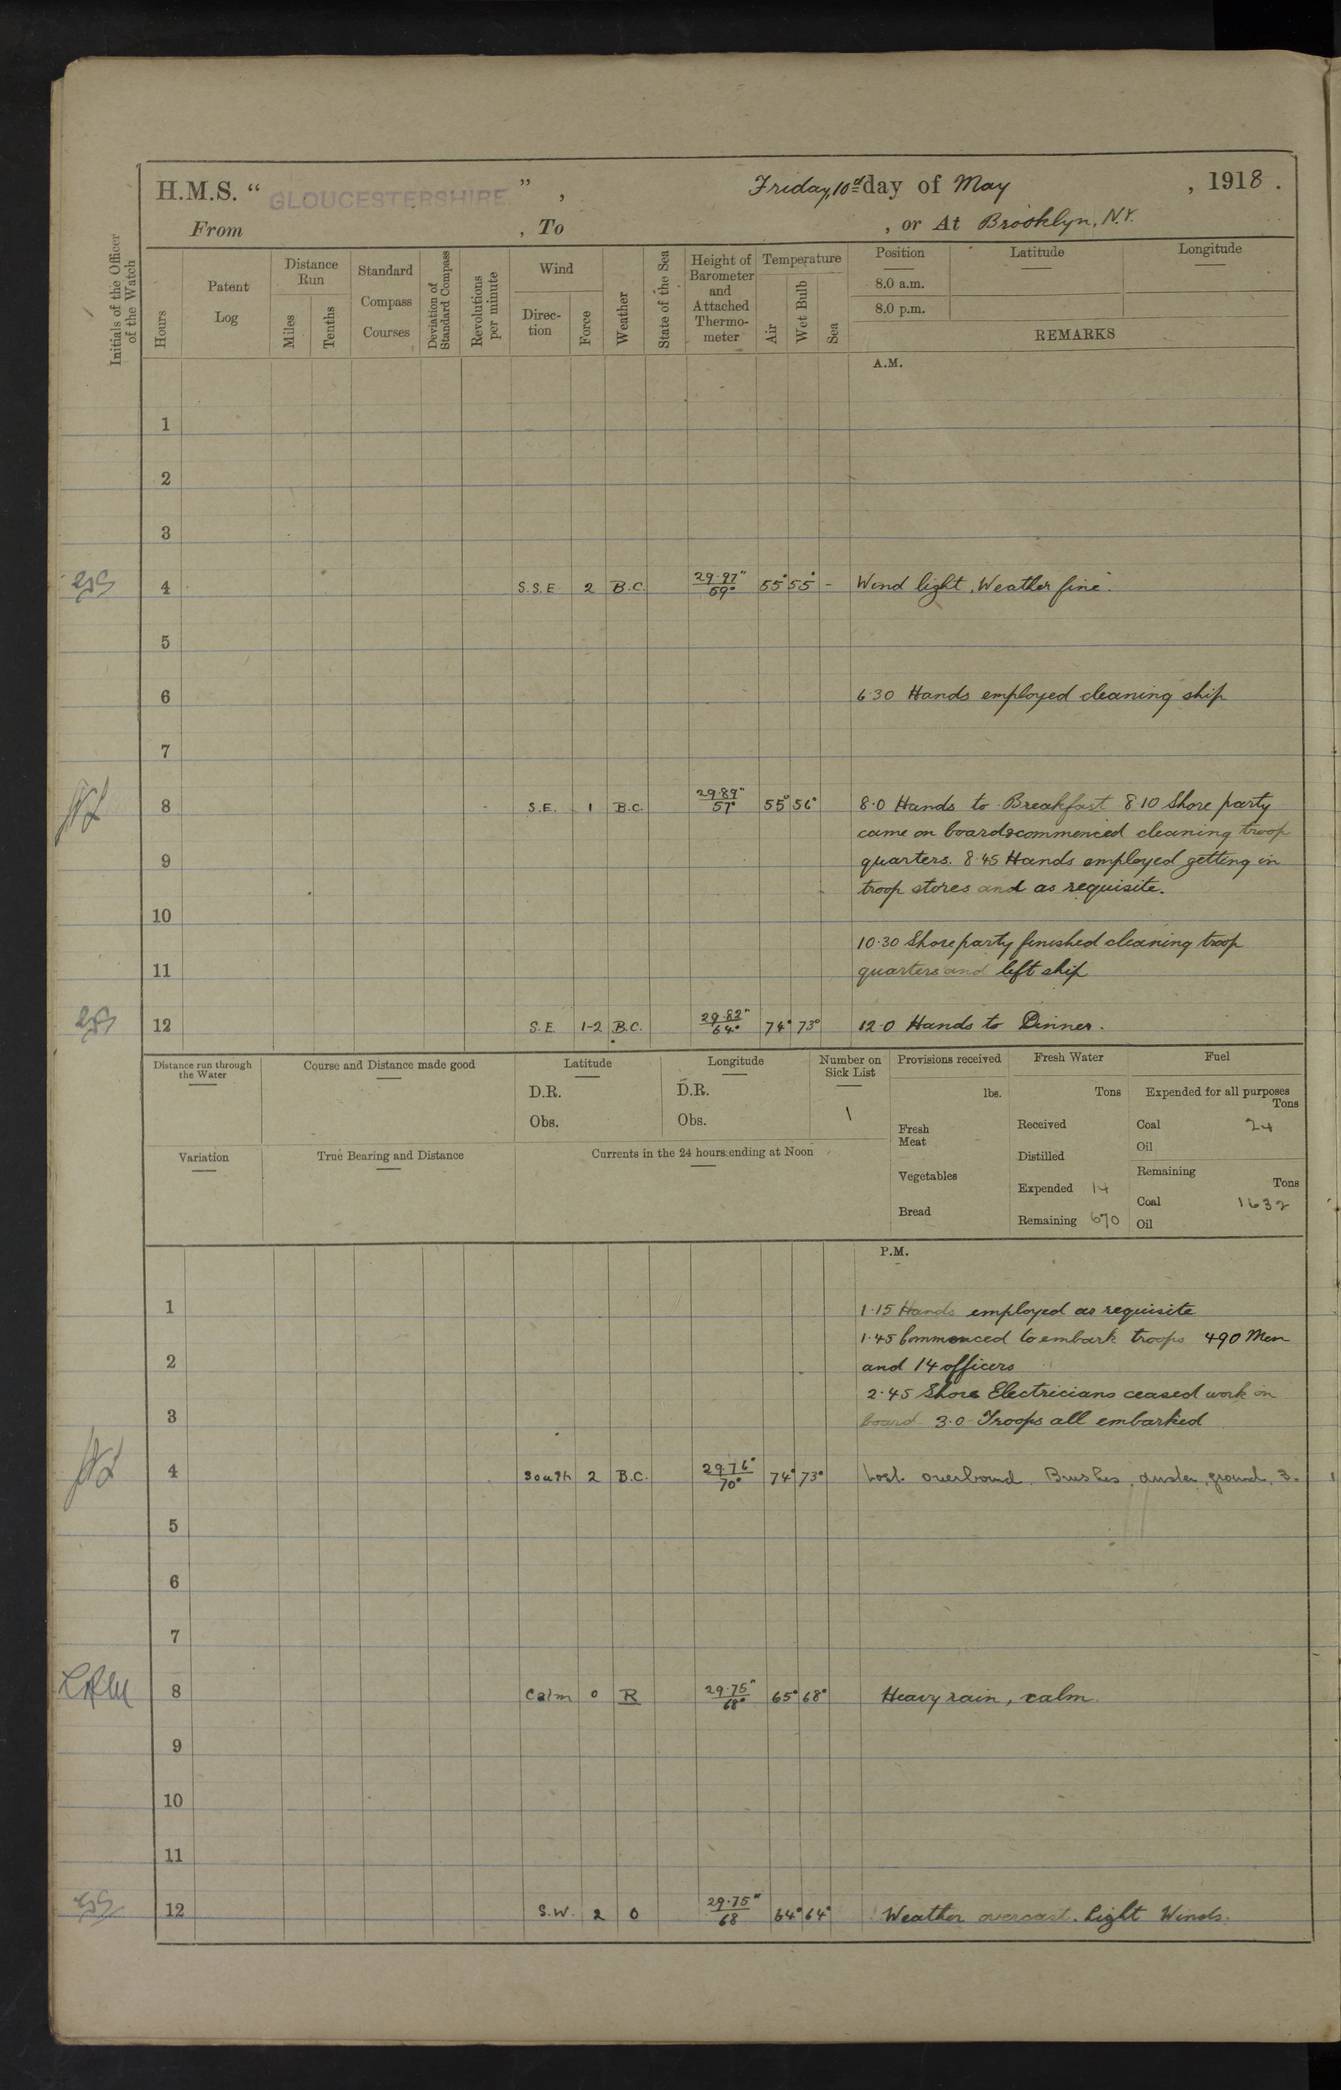 H.M.S. " GLOUCESTERSHIRE " , Friday, 10th day of May , 1918 .
From , To , or At Brooklyn, N.Y.
Initials of the Officer of the Watch
Hours
Patent Log
Distance Run
Miles
Tenths
Standard Compass Courses
Deviation of Standard Compass
Revolutions per minute
Wind
Direction
Force
Weather
State of the Sea
Height of Barometer and Attached Thermometer
Temperature
Air
Wet Bulb
Sea
Position
Latitude
Longitude
8.0 a.m.
8.0 p.m.
REMARKS
A.M.
1
2
3
4 S.S.E. 2 B.C. 29.97" 59° 55° 55° - Wind light, Weather fine.
5
6 6.30 Hands employed cleaning ship
7
8 S.E. 1 B.C. 29.89" 57° 55° 56° 8.0 Hands to Breakfast 8.10 Shore party
came on board & commenced cleaning troop
9 quarters. 8.45 Hands employed getting in
troop stores and as requisite.
10
10.30 Shore party finished cleaning troop
11 quarters and left ship
12 S.E. 1-2 B.C. 29.82" 64° 74° 73° 12.0 Hands to Dinner.
Distance run through the Water
Course and Distance made good
Latitude
D.R.
Obs.
Longitude
D.R.
Obs.
Number on Sick List
1
Provisions received
lbs.
Fresh Meat
Vegetables
Bread
Fresh Water
Tons
Received
Distilled
Expended 14
Remaining 670
Fuel
Expended for all purposes
Tons
Coal 24
Oil
Remaining
Tons
Coal 1632
Oil
Variation
True Bearing and Distance
Currents in the 24 hours ending at Noon
P.M.
1 1.15 Hands employed as requisite
1.45 Commenced to embark troops 490 Men
2 and 14 officers
2.45 Shore Electricians ceased work on
3 board 3.0 Troops all embarked
4 South 2 B.C. 29.76" 70° 74° 73° Lost overboard. Brushes, 3.
5
6
7
8 Calm 0 R 29.75" 68° 65° 68° Heavy rain, calm.
9
10
11
12 S.W. 2 O 29.75" 68 64° 64° Weather overcast. Light Winds.